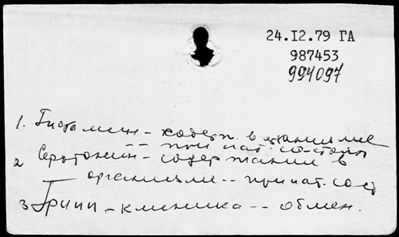 24.I2.79 ГА
987453
994097
1. Гистамин - содерж. в организме
-- при пат. состоян
2 Серотонин - содержание в
организме -- при пат. сост
3 Грипп - клиника -- обмен.